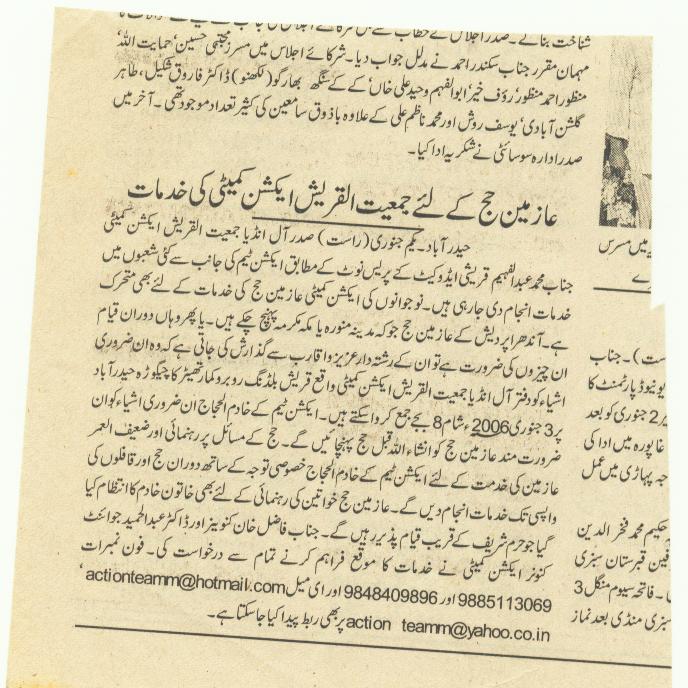 شناخت بنائے۔ صدر اجلاس نے خطاب
مہمان مقرر جناب سکندر احمد نے مدلل جواب دیا۔ شرکائے اجلاس میں مسرز مجتبیٰ حسین' حمایت اللہ'
منظور احمد منظور' رؤف خیر' ابوالفہیم وحید علی خاں' کے کے سنگھ بھارگو (لکھنو) ڈاکٹر فاروق شکیل، طاہر
گلشن آبادی' یوسف روش اور محمد ناظم علی کے علاوہ باذوق سامعین کی کثیر تعداد موجود تھی۔ آخر میں
صدر ادارہ سوسائٹی نے شکریہ ادا کیا۔
عازمین حج کے لئے جمعیت القریش ایکشن کمیٹی کی خدمات
حیدرآباد۔ یکم جنوری (راست) صدر آل انڈیا جمعیت القریش ایکشن کمیٹی
جناب محمد عبدالفہیم قریشی ایڈوکیٹ کے پریس نوٹ کے مطابق ایکشن ٹیم کی جانب سے کئی شعبوں میں
خدمات انجام دی جارہی ہیں۔ نوجوانوں کی ایکشن کمیٹی عازمین حج کی خدمات کے لئے بھی متحرک
ہے۔ آندھرا پردیش کے عازمین حج جو کہ مدینہ منورہ یا مکہ مکرمہ پہنچ چکے ہیں۔ یا پھر وہاں دوران قیام
ان چیزوں کی ضرورت ہے تو ان کے رشتہ دار عزیز و اقارب سے گذارش کی جاتی ہے کہ وہ ان ضروری
اشیاء کو دفتر آل انڈیا جمعیت القریش ایکشن کمیٹی واقع قریش بلڈنگ روبرو کمار تھیٹر کاچیگوڑہ حیدرآباد
پر 3 جنوری 2006ء شام 8 بجے جمع کرواسکتے ہیں۔ ایکشن ٹیم کے خادم الحجاج ان ضروری اشیاء کو ان
ضرورت مند عازمین حج کو انشاء اللہ قبل حج پہنچائیں گے۔ حج کے مسائل پر رہنمائی اور ضعیف العمر
عازمین کی خدمت کے لئے ایکشن ٹیم کے خادم الحجاج خصوصی توجہ کے ساتھ دوران حج اور قافلوں کی
واپسی تک خدمات انجام دیں گے۔ عازمین حج خواتین کی رہنمائی کے لئے بھی خاتون خادم کا انتظام کیا
گیا جو حرم شریف کے قریب قیام پذیر رہیں گے۔ جناب فاضل خان کنوینر اور ڈاکٹر عبدالحمید جوائنٹ
کنونر ایکشن کمیٹی نے خدمات کا موقع فراہم کرنے تمام سے درخواست کی۔ فون نمبرات
9885113069 اور 9848409896 اور ای میل actionteamm@hotmail.com'
action teamm@yahoo.co.in پر بھی ربط پیدا کیا جاسکتا ہے۔
میں مسرس
رے
ست)۔ جناب
یونیوڈپارٹمنٹ کا
2 جنوری کو بعد
غاپورہ میں ادا کی
جہ پہاڑی میں عمل
حکیم محمد فخر الدین
فین قبرستان سبزی
۔ فاتحہ سیوم منگل 3
سبزی منڈی بعد نماز